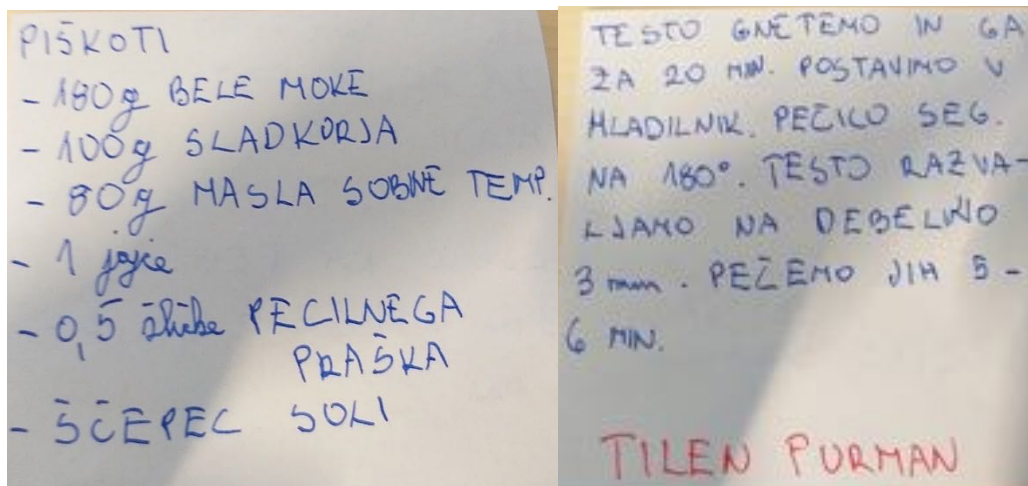 PIŠKOTI
- 180g BELE MOKE
- 100g SLADKORJA
- 80g MASLA SOBNE TEMP.
- 1 jajce
- 0,5 žličke PECILNEGA
PRAŠKA
- ŠČEPEC SOLI
TESTO GNETEMO IN GA
ZA 20 MIN. POSTAVIMO V
HLADILNIK. PEČICO SEG.
NA 180°. TESTO RAZVA-
LJAMO NA DEBELINO
3 mm. PEČEMO JIH 5-
6 MIN.
TILEN PURMAN